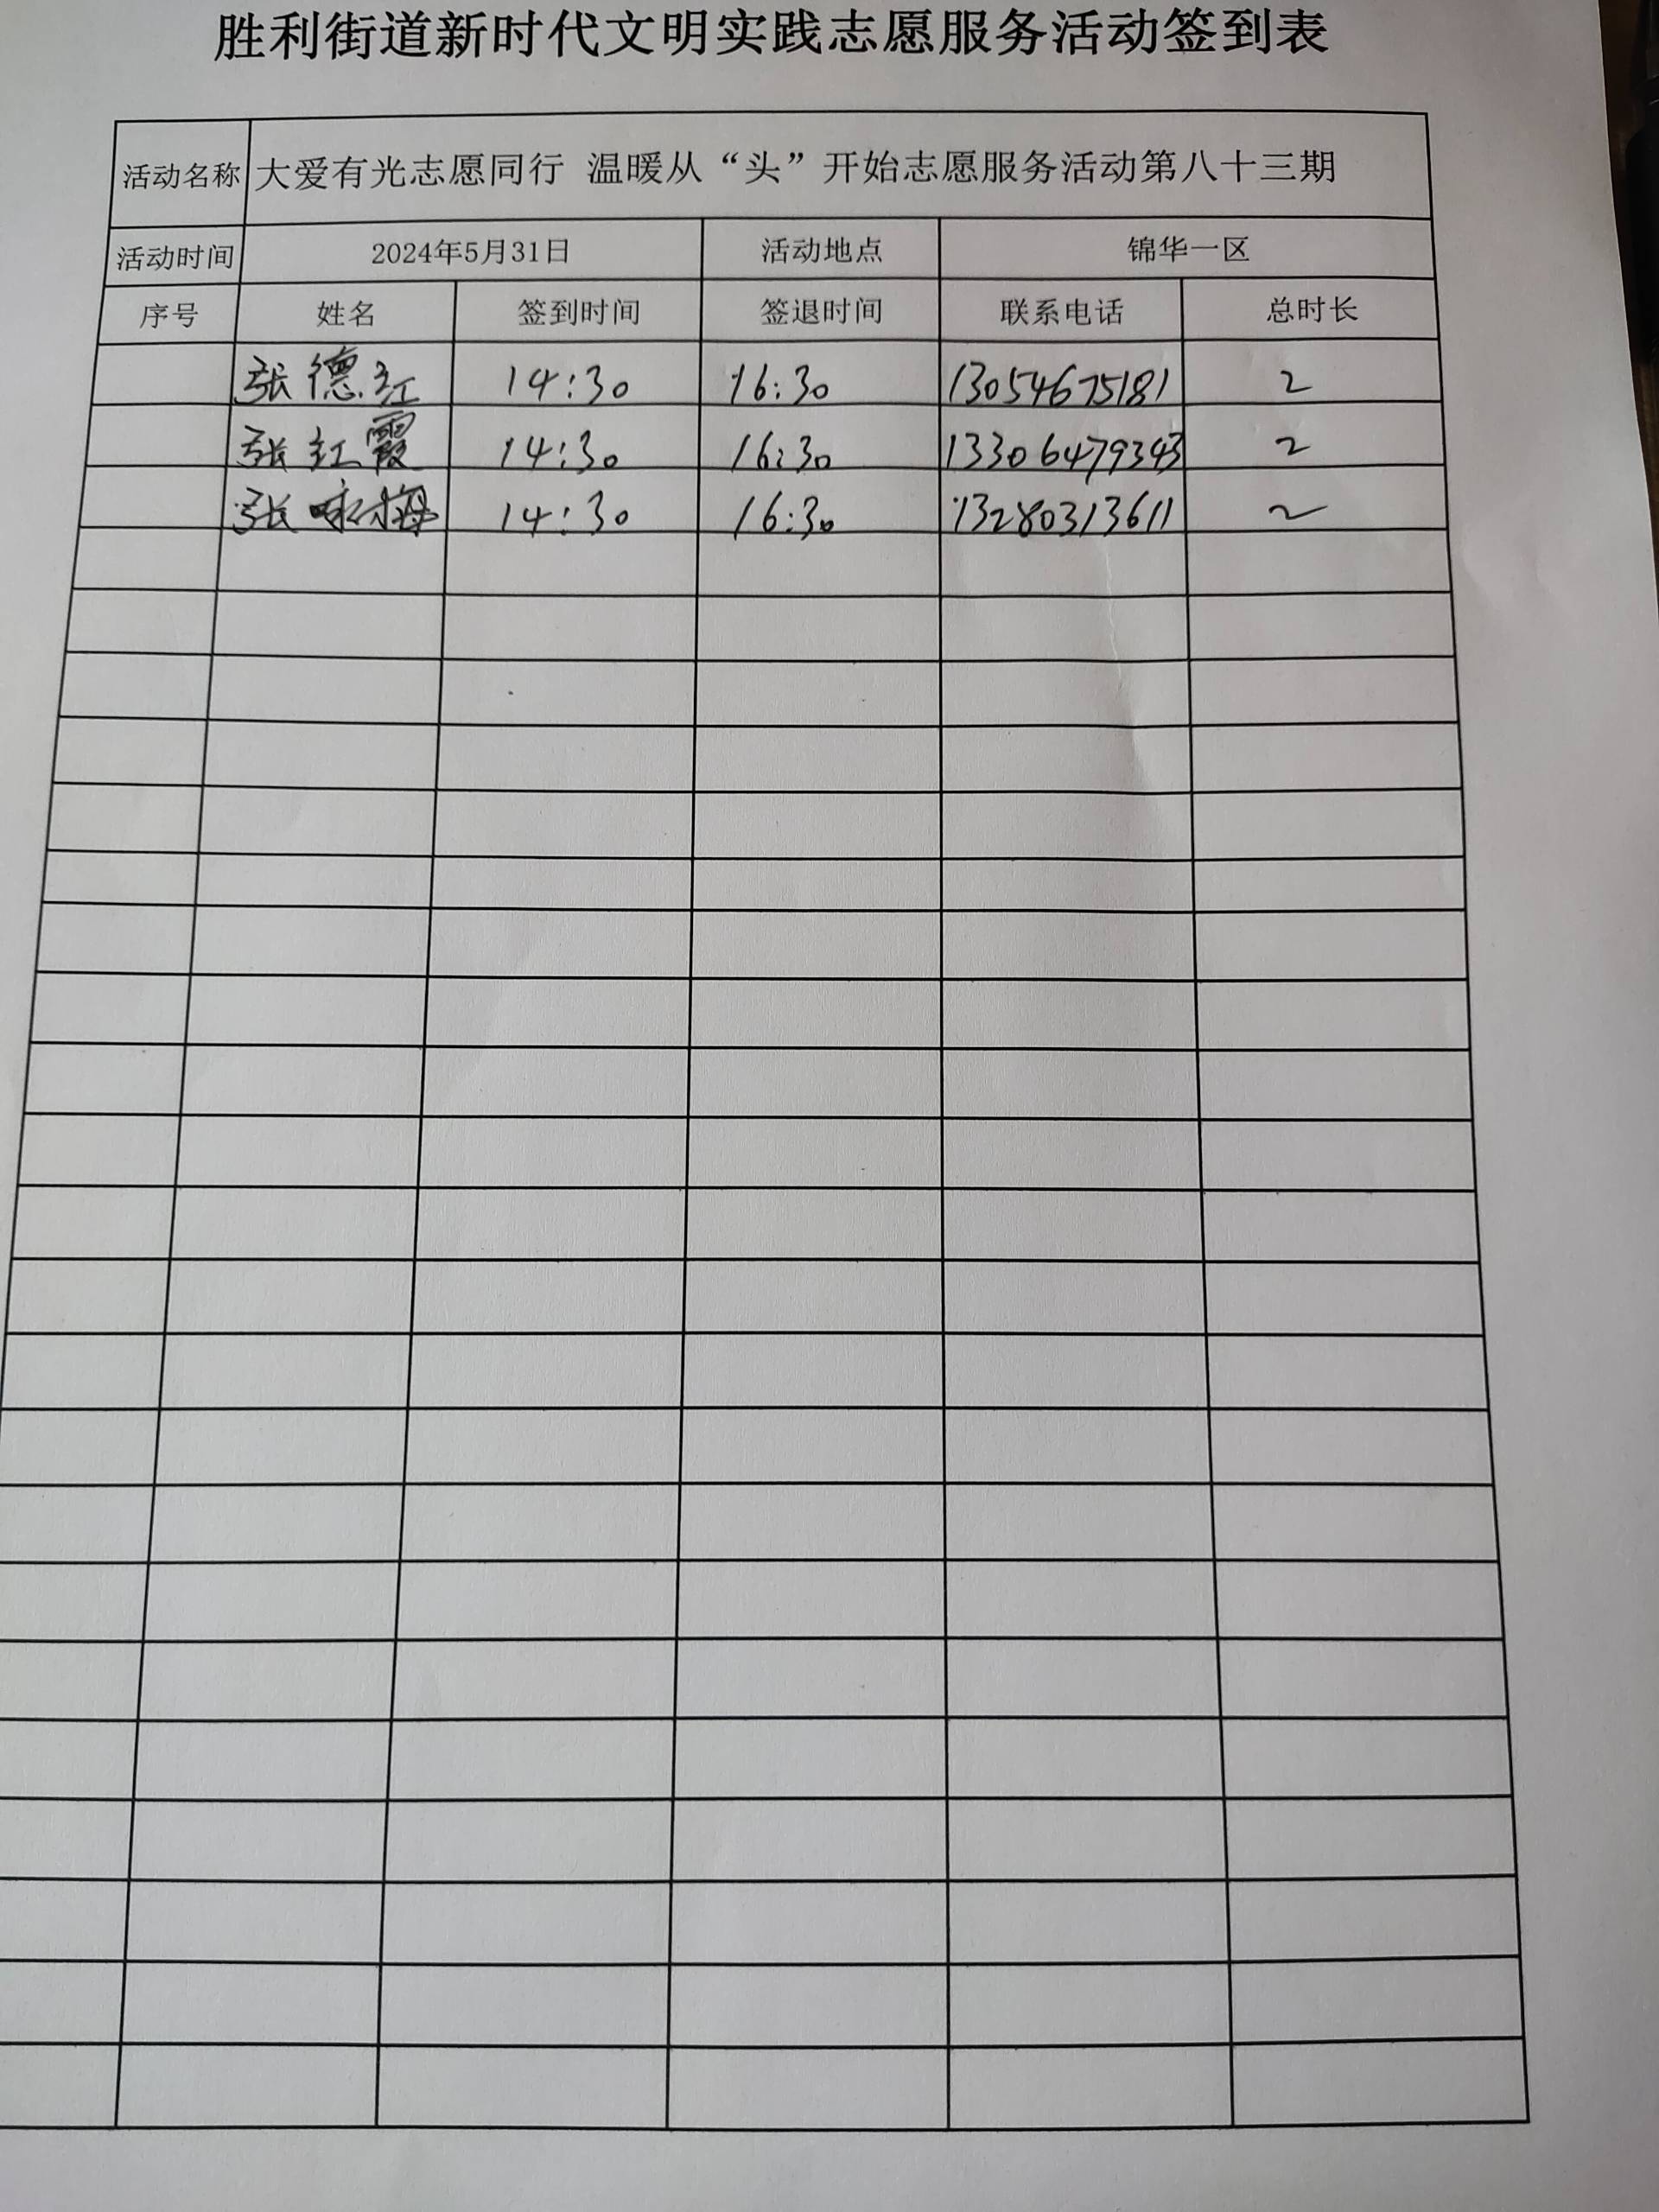 胜利街道新时代文明实践志愿服务活动签到表
活动名称 大爱有光志愿同行 温暖从“头”开始志愿服务活动第八十三期
活动时间 2024年5月31日 活动地点 锦华一区
序号 姓名 签到时间 签退时间 联系电话 总时长
张德红 14:30 16:30 13054675181 2
张红霞 14:30 16:30 13306479343 2
张咏梅 14:30 16:30 13280313611 2